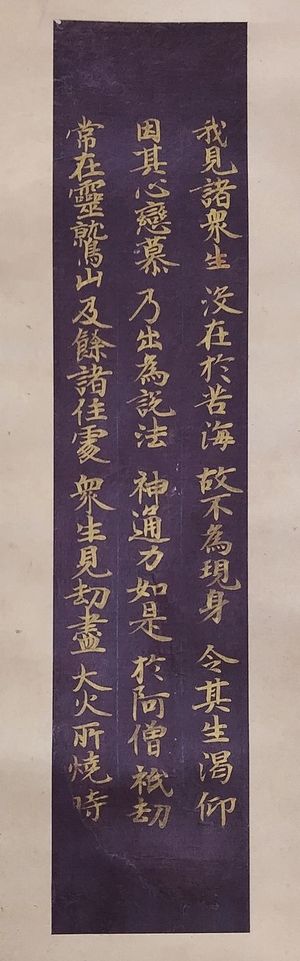 我見諸衆生 没在於苦海 故不為現身 令其生渇仰
因其心戀慕 乃出為説法 神通力如是 於阿僧祇劫
常在靈鷲山 及餘諸住處 衆生見劫盡 大火所燒時